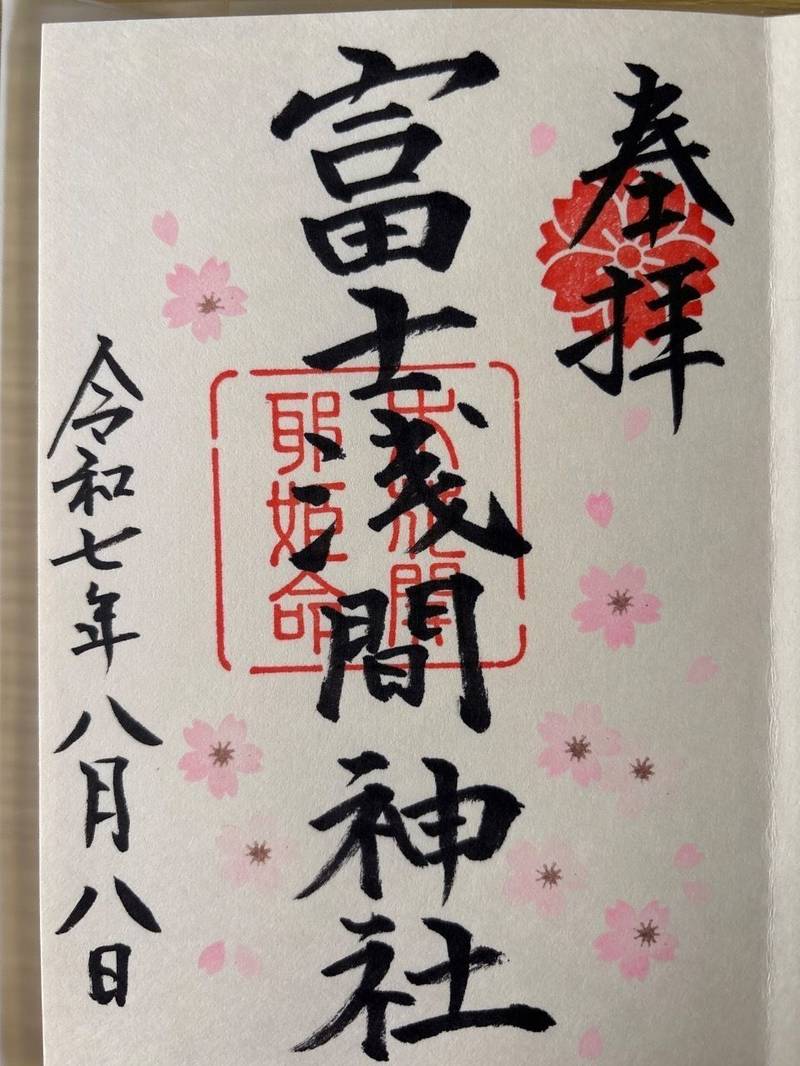 奉拝
富士浅間神社
木花開
耶姫命
令和七年八月八日